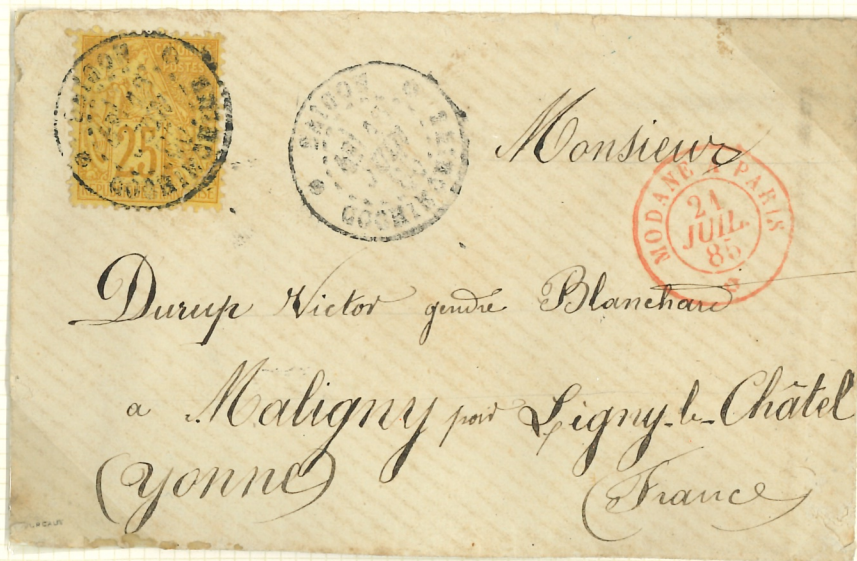 25
SAIGON
COCHINCHINE
SAIGON
COCHINCHINE
Monsieur
MODANE A PARIS
21
JUIL.
85
Durup Victor gendre Blanchard
a Maligny par Ligny-le-Châtel
(Yonne)
(France)